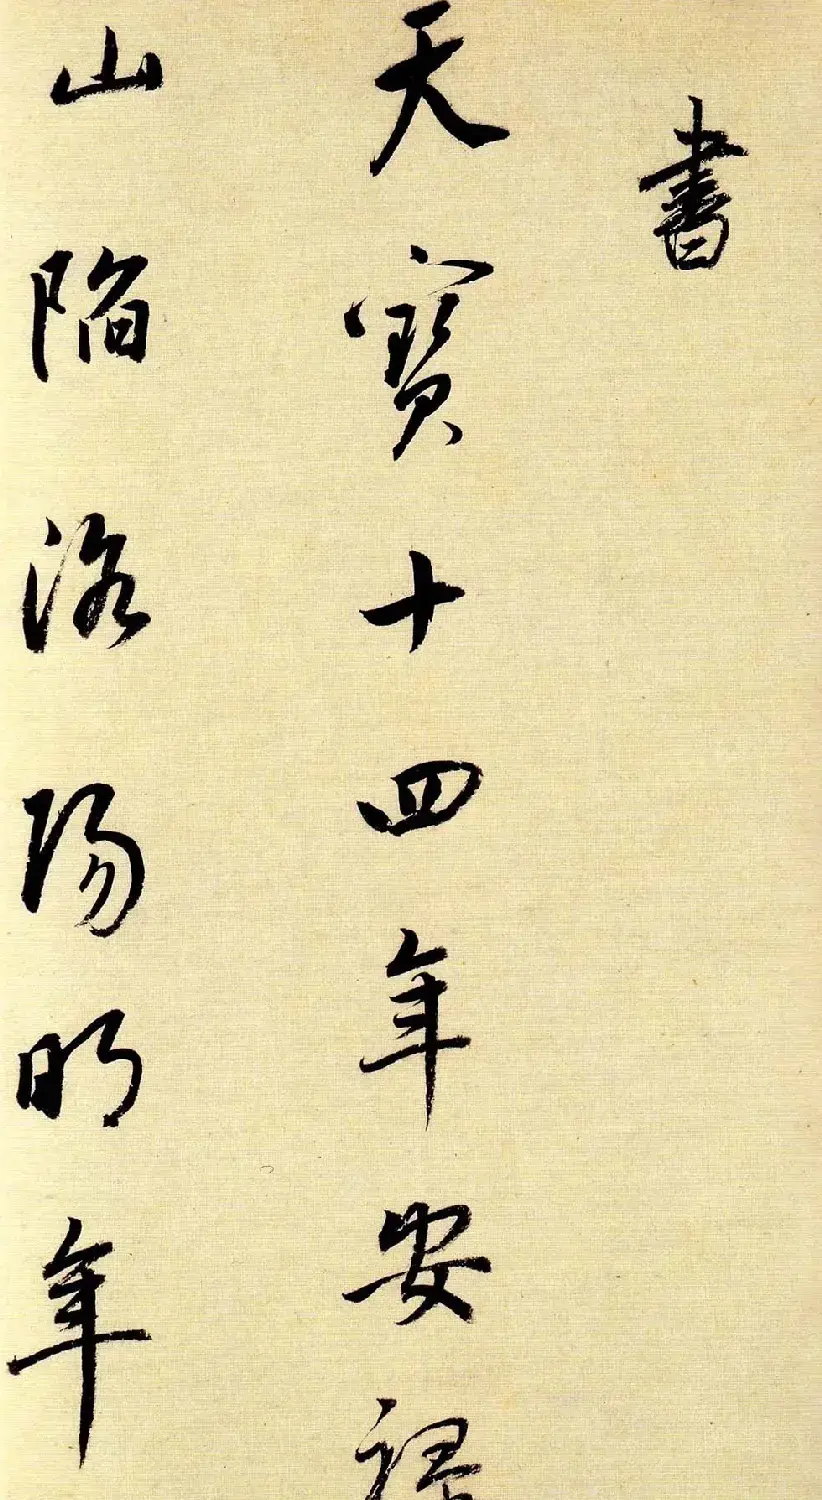 書
天寶十四年安祿
山陷洛陽明年